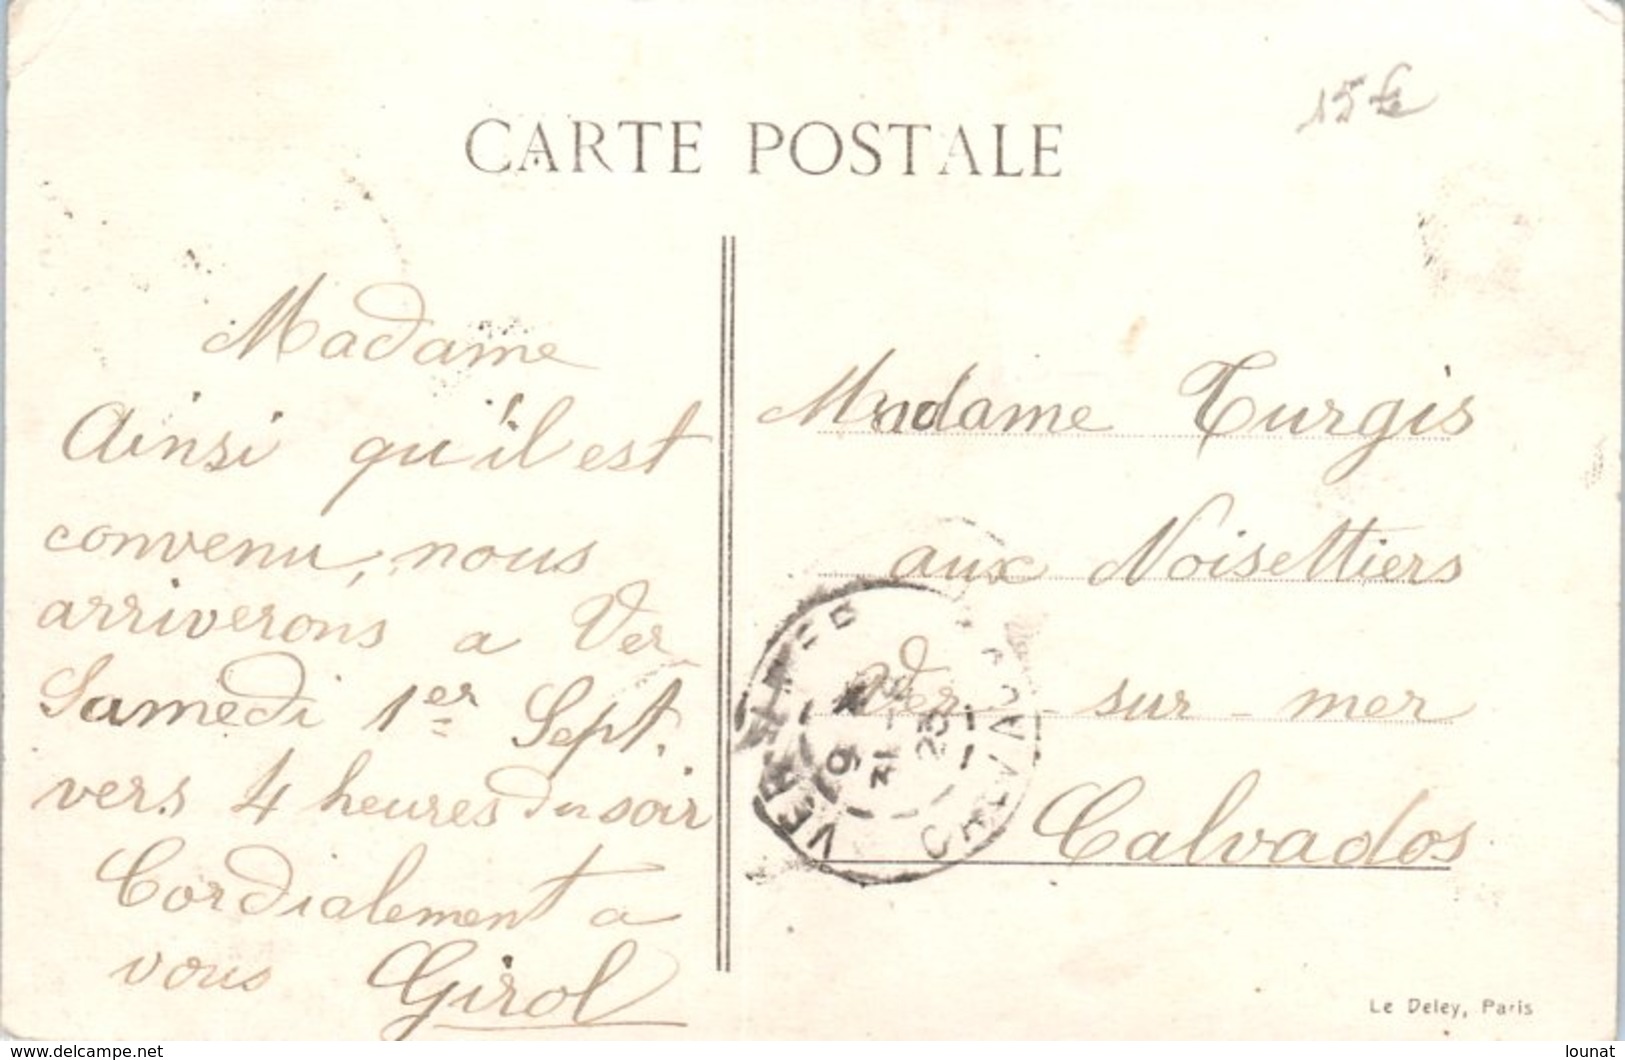 CARTE POSTALE
15€
Madame
Ainsi qu'il est
convenu, nous
arriverons a Ver
Samedi 1er Sept.
vers 4 heures du soir
Cordialement a
vous Girol
Madame Turgis
aux Noisettiers
Ver - sur - mer
Calvados
VER-S-MER
CALVADOS
Le Deley, Paris
www.delcampe.net
lounat